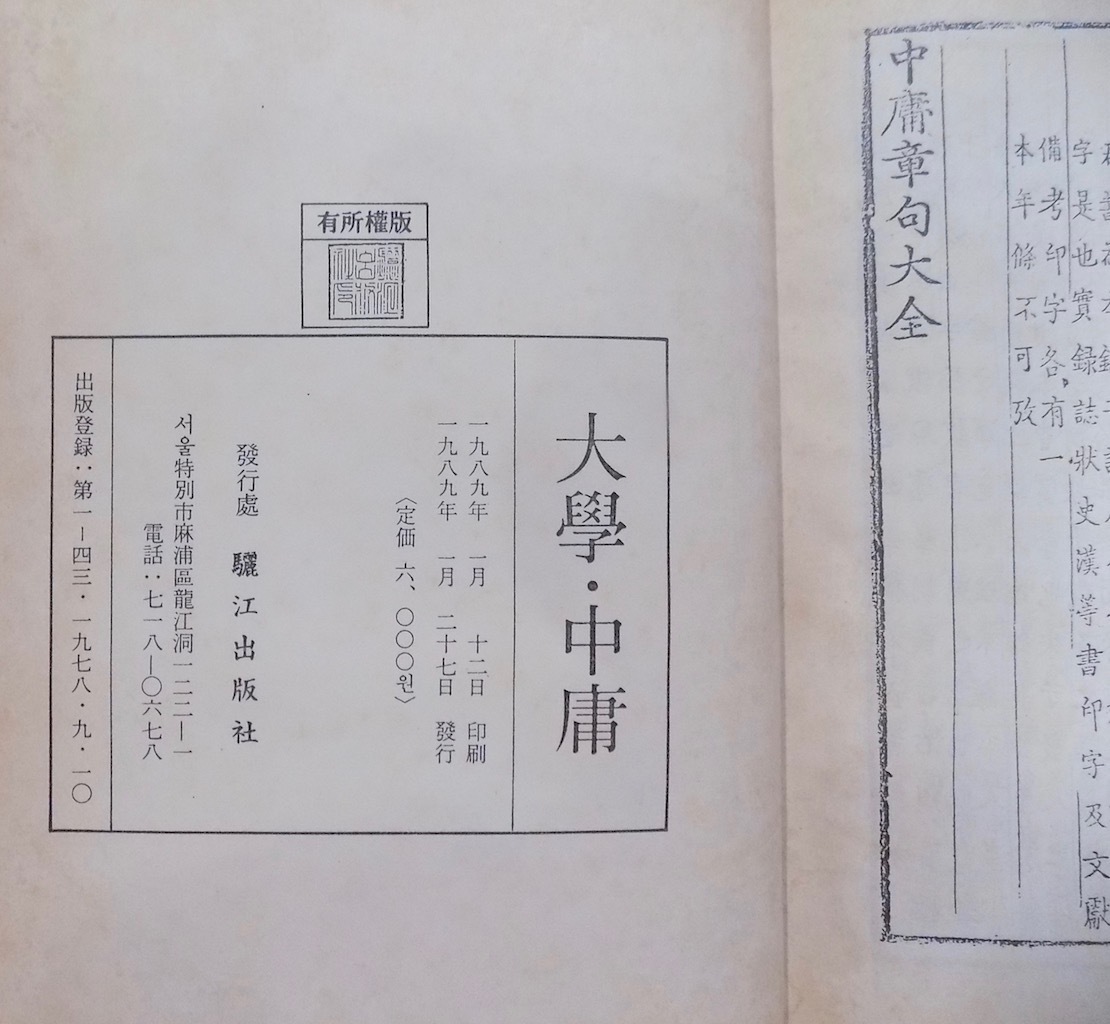 字是也實録誌狀史漢等書印字及文獻
備考印字各有一
本年條不可攷
中庸章句大全
版權所有
大學·中庸
一九八九年 一月 十二日 印刷
一九八九年 一月 二十七日 發行
〈定価 六、〇〇〇원〉
發行處 驪江出版社
서울特別市麻浦區龍江洞一二二—一
電話：七一八—〇六七八
出版登録：第一—四三·一九七八·九·一〇